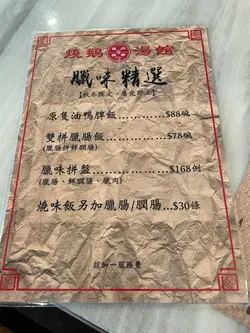 燒鵝 湯館
臘味精選
原隻油鴨髀飯 $88碗
雙拼臘腸飯 $78碗
(臘腸拼鮮膶腸)
臘味拼盤 $168例
(臘腸、鮮膶腸、臘肉)
燒味飯另加臘腸/膶腸 $30條
設加一服務費